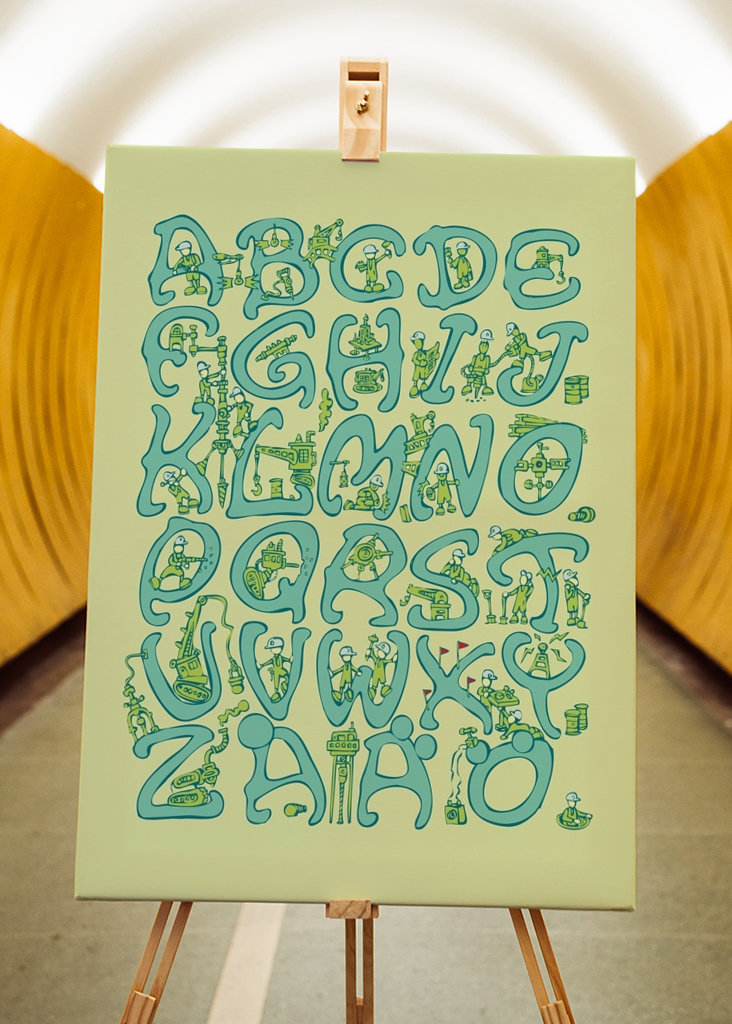 ABCDE
FGHIJ
KLMNO
PQRST
UVWXY
ZÅÄÖ